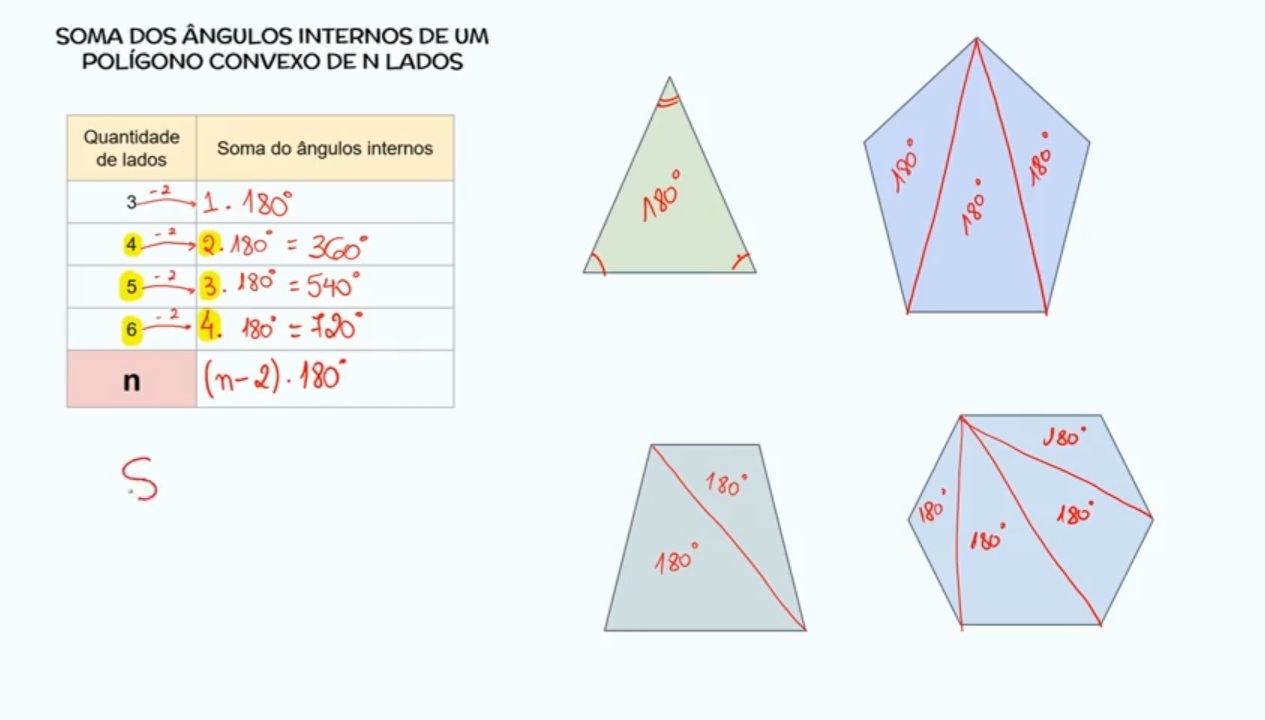 SOMA DOS ÂNGULOS INTERNOS DE UM
POLÍGONO CONVEXO DE N LADOS
Quantidade
de lados
Soma do ângulos internos
3 -2 1. 180°
4 -2 2. 180° = 360°
5 -2 3. 180° = 540°
6 -2 4. 180° = 720°
n (n-2). 180°
S
180°
180°
180°
180°
180°
180°
180°
180°
180°
180°